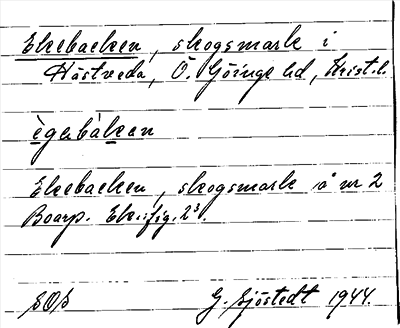 Ekebacken, skogsmark i
Hästveda, Ö. Göinge hd, Krist. l.
ègabàkan
Ekebacken, skogsmark å nr 2
Boarp. Ek.: fig. 2³.
SOS G. Sjöstedt 1944.